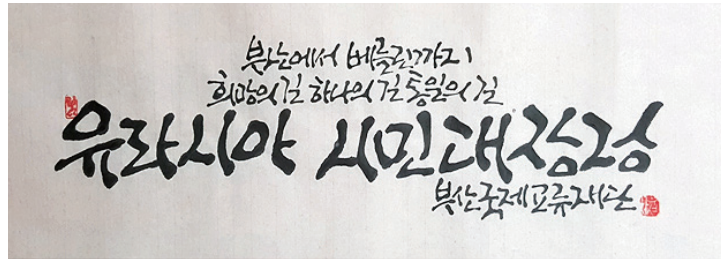 부산에서 베를린까지
희망의 길 하나의 길 통일의 길
유라시아 시민대장정
부산국제교류재단